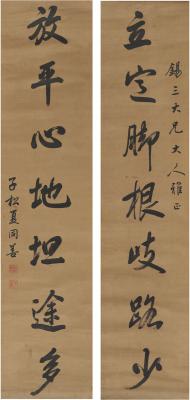 立定脚根歧路少
錫三大兄大人雅正
放平心地坦途多
子松夏同善